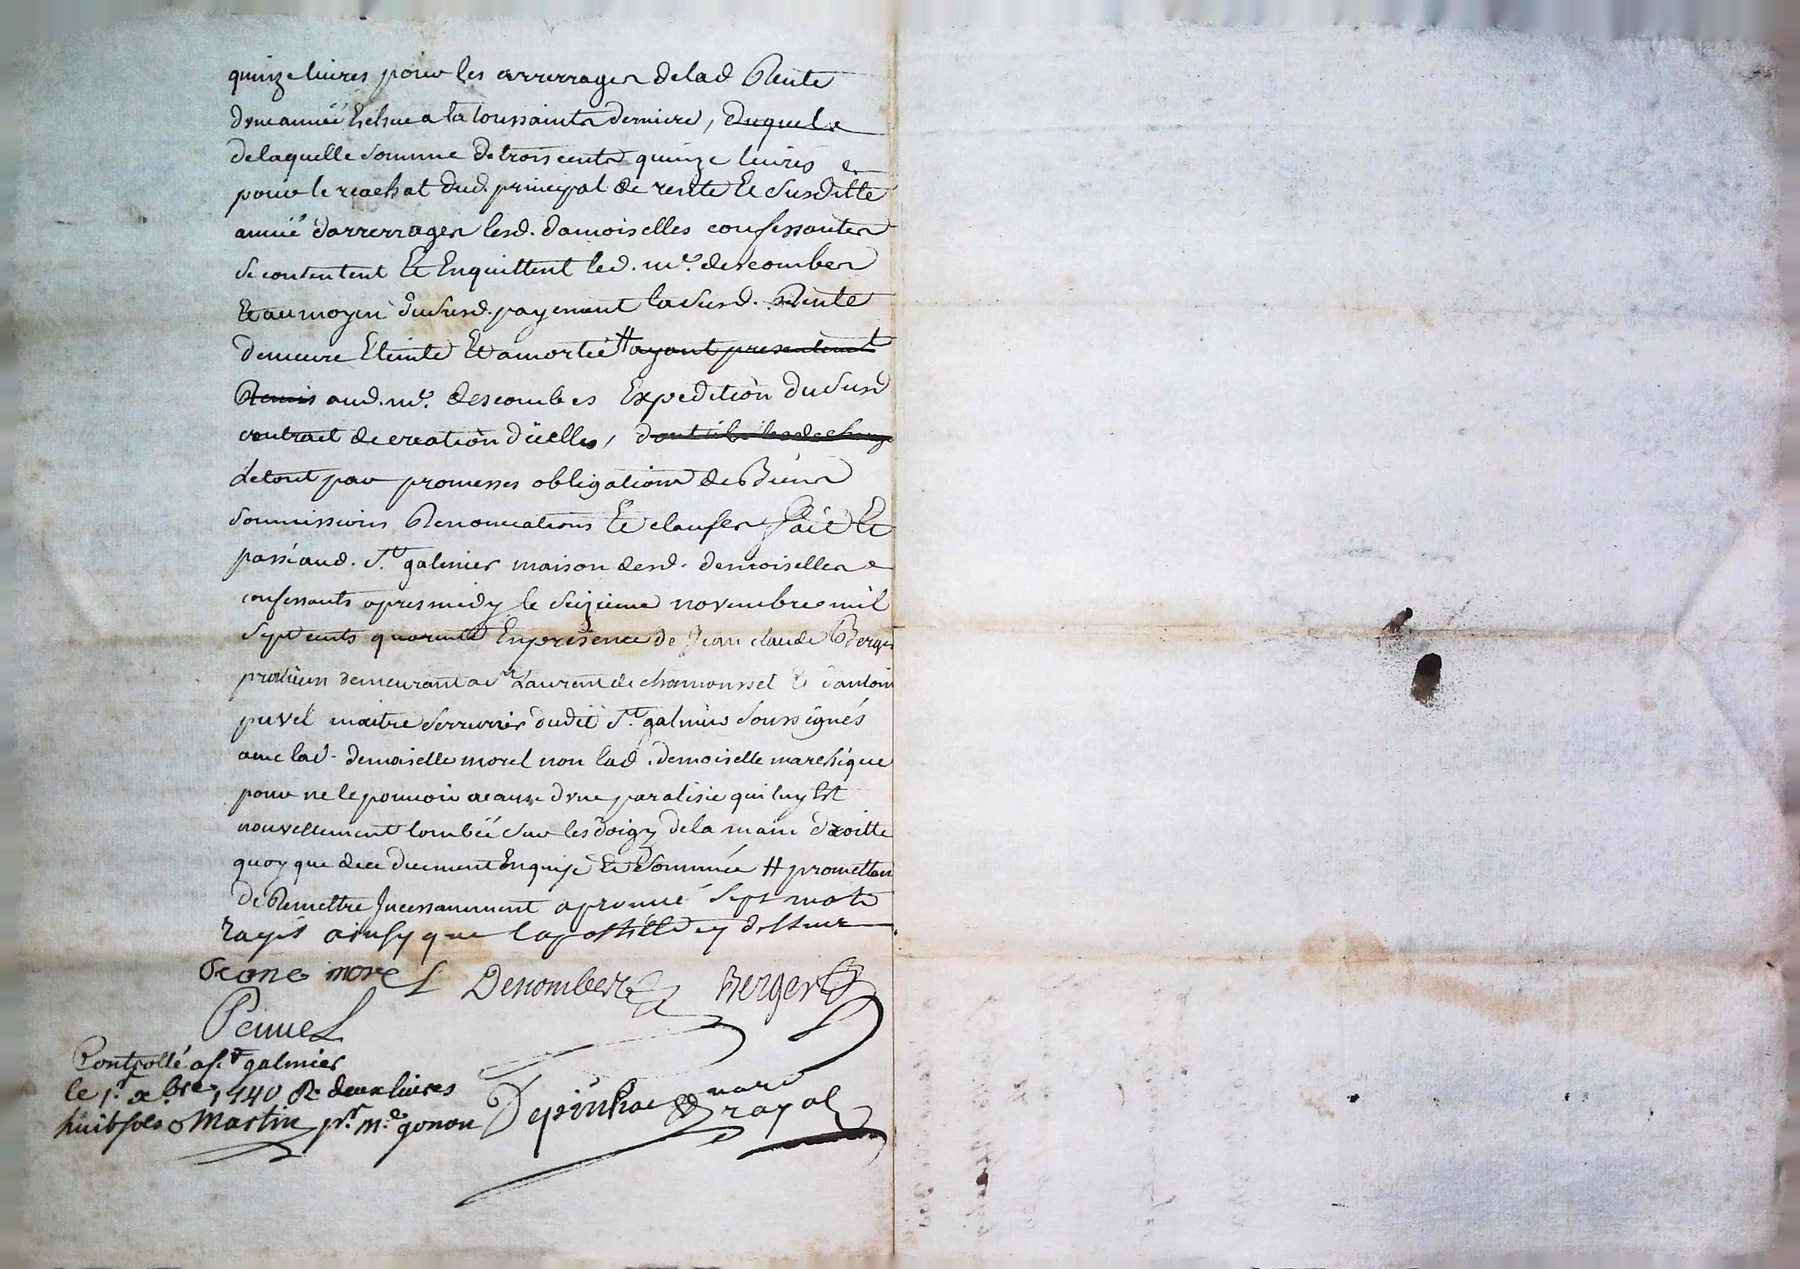 quinze livres pour les arrerrages delad Rente
dune année Echue a la toussaints derniere, duquel e
delaquelle somme de trois cents quinze livres e
pour le rachat dud. principal de rente et susditte
année darrerrages lesd. damoiselles confessantes
se contentent Et Enquittent led. me. descombes
Et au moyen du susd. payement la susd. Rente
demeure Eteinte Et amortie # ayant presentement
Remis aud. me. descombes Expedition du susd
contrait de creation d'icelles, dont il les decharge
le tout par promesses obligations de Biens
soumissions Renonciations Et clauses fait Et
passé aud. St. galmier maison desd. demoiselles e
confessants apres midy le seizieme novembre mil
sept cents quarente En presence de Jean claude Berger
praticien demeurant a St Laurent de chamousset Et d'antoine
maitre serrurier dudit St. galmier soussignés
avec lad. demoiselle morel non lad. demoiselle
pour ne le pouvoir a cause d'une paralisie qui luy Est
nouvellement tombée sur les doigz de la main droitte
quoy que de ce duement Enquise Et sommée # promettant
de Remettre Incessamment aprouvé sept mots
rayés ainsy que lapostille cy dessus
morel Descombes Berger
Controllé a St galmier
le 1r. xbre. 1740 R. deux livres
huit sols Martin pr. Me gonon